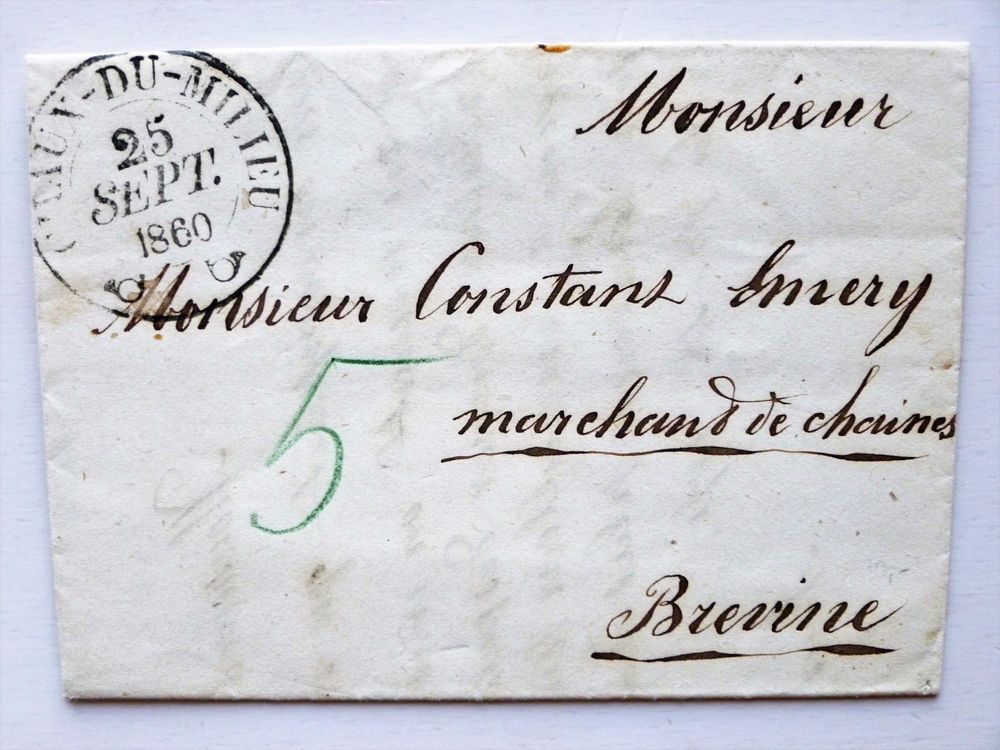 CHAUX-DU-MILIEU
25
SEPT.
1860
Monsieur
Monsieur Constant Emery
5
marchand de chaines
Brevine